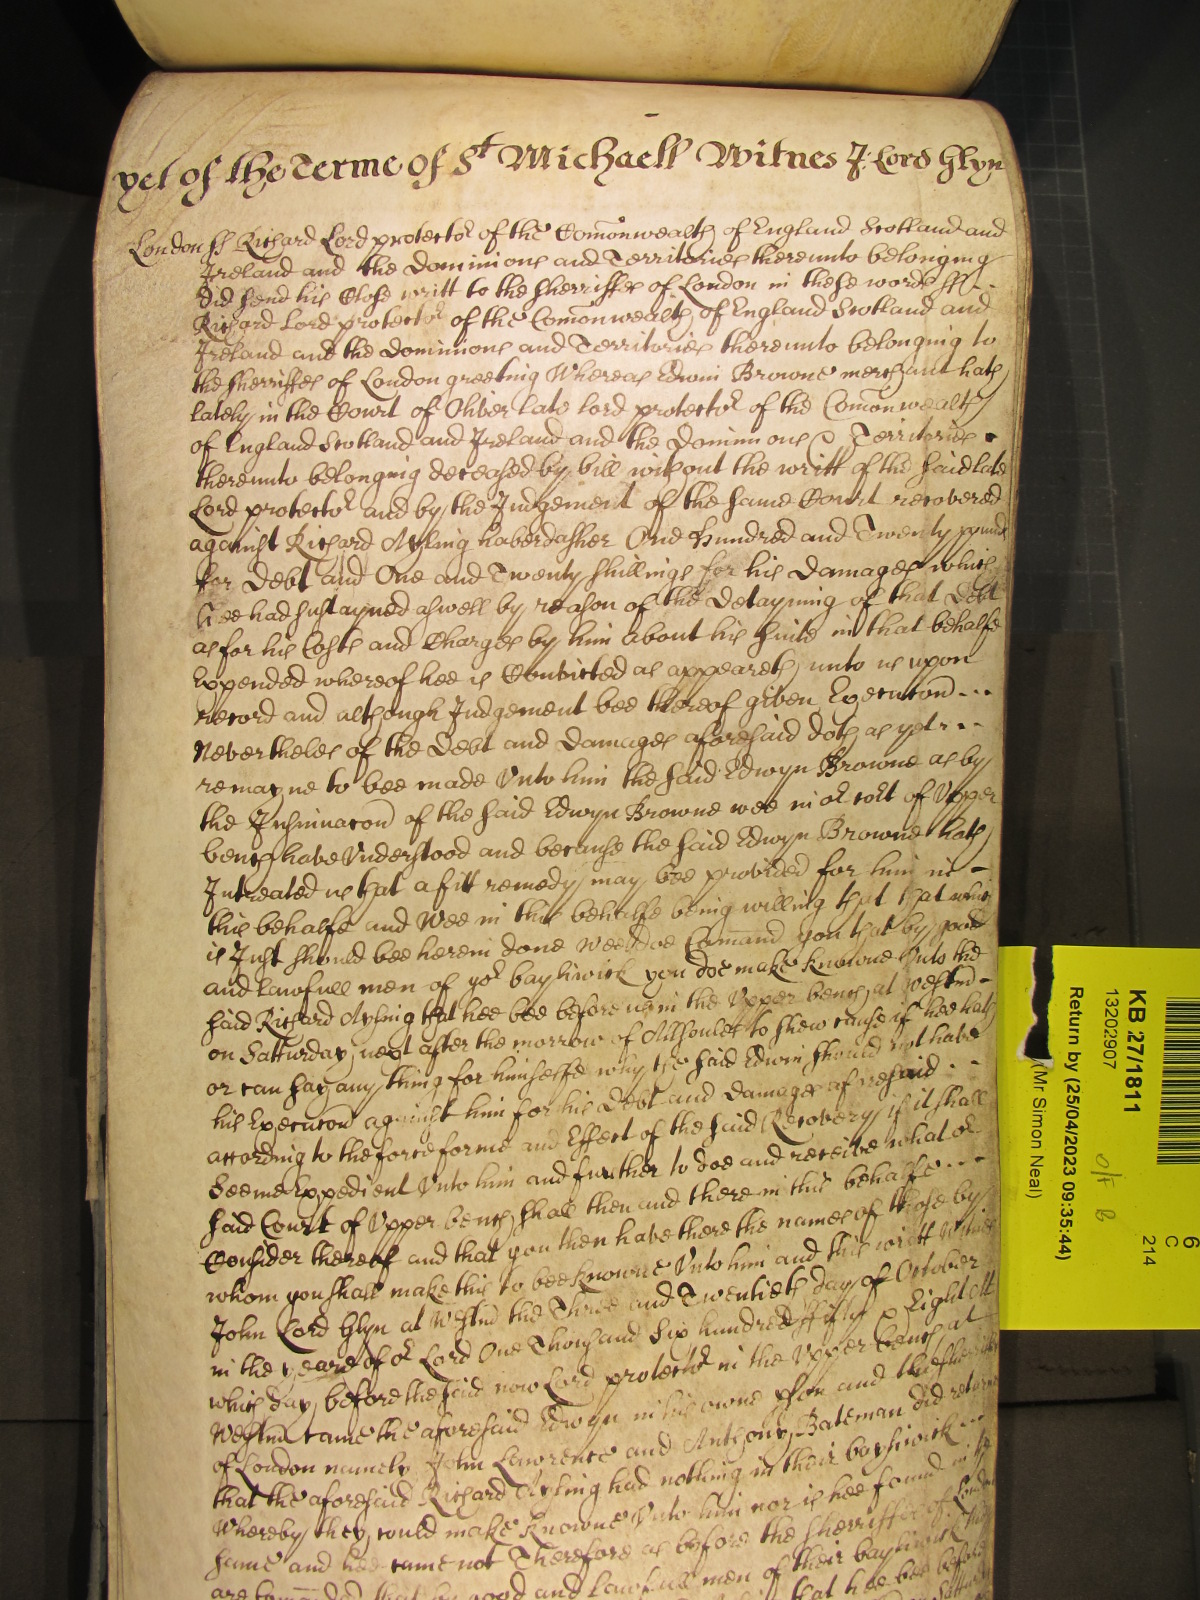 yet of the Terme of St Michaell Witnes J: Lord Glyn
London ss Richard Lord protector of the Comonwealth of England Scotland and
Ireland and the Dominions and Territories thereunto belonging
did send his Close writt to the sherriffes of London in these words ss
Richard Lord protector of the Comonwealth of England Scotland and
Ireland and the Dominions and Territories thereunto belonging to
the sherriffes of London greeting Whereas Edwin Browne merchant hath
lately in the Court of Oliver late lord protector of the Comonwealth
of England Scotland and Ireland and the Dominions & Territories
thereunto belonging deceased by bill without the writt of the said late
Lord protector and by the Judgement of the same Court recovered
against Richard Ayling haberdasher One Hundred and Twenty pounds
for Debt and One and Twenty shillings for his Damages which
hee had sustayned aswell by reason of the Detayning of that Debt
as for his Costs and Charges by him about his suite in that behalfe
Expended whereof hee is Convicted as appeareth unto us upon
record and although Judgement bee thereof given Execucon
Nevertheles of the Debt and Damages aforesaid doth as yet
remayne to bee made Unto him the said Edwyn Browne as by
the Insinuacon of the said Edwyn Browne wee in or Cort of Upper
bench have Understood and because the said Edwyn Browne hath
Intreated us that a fitt remedy may bee provided for him in
this behalfe and Wee in this behalfe being willing that that which
is Just should bee herein done Wee doe Comand you that by good
and lawfull men of yor bayliwick you doe make knowne Unto the
said Richard Ayling that hee bee before us in the Upper bench at Westmr
on Satturday next after the morrow of Allsoules to shew cause if hee hath
or can say any thing for himselfe why the said Edwin should not have
his Execucon against him for his Debt and Damages aforesaid
according to the force forme and Effect of the said Recovery if it shall
Seeme Expedient Unto him and further to doe and receive what or
said Court of Upper bench shall then and there in this behalfe
Consider thereof and that you then have there the names of those by
whom you shall make this to bee knowne Unto him and this writt Witnes
John Lord Glyn at Westmr the Three and Twentieth day of October
in the yeare of or Lord One Thousand Six hundred fifty & Eight Att
which day before the said now Lord protector in the Upper bench at
Westmr came the aforesaid Edwyn in his owne pson and the sherriffes
of London namely John Lawrence and Anthony Bateman did returne
that the aforesaid Richard Ayling had nothing in their bayliwick
Whereby they could make knowne Unto him nor is hee found in the
same and hee came not Therefore as before the sherriffes of London
are comanded that by good and lawfull men of their bayliwick
that hee bee before
KB 27/1811
13202907
Return by (25/04/2023 09:35:44)
(Mr Simon Neal)
6
C
214
O/F B